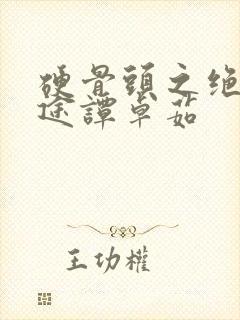 硬骨頭之絕
途譚卓茹
王功權